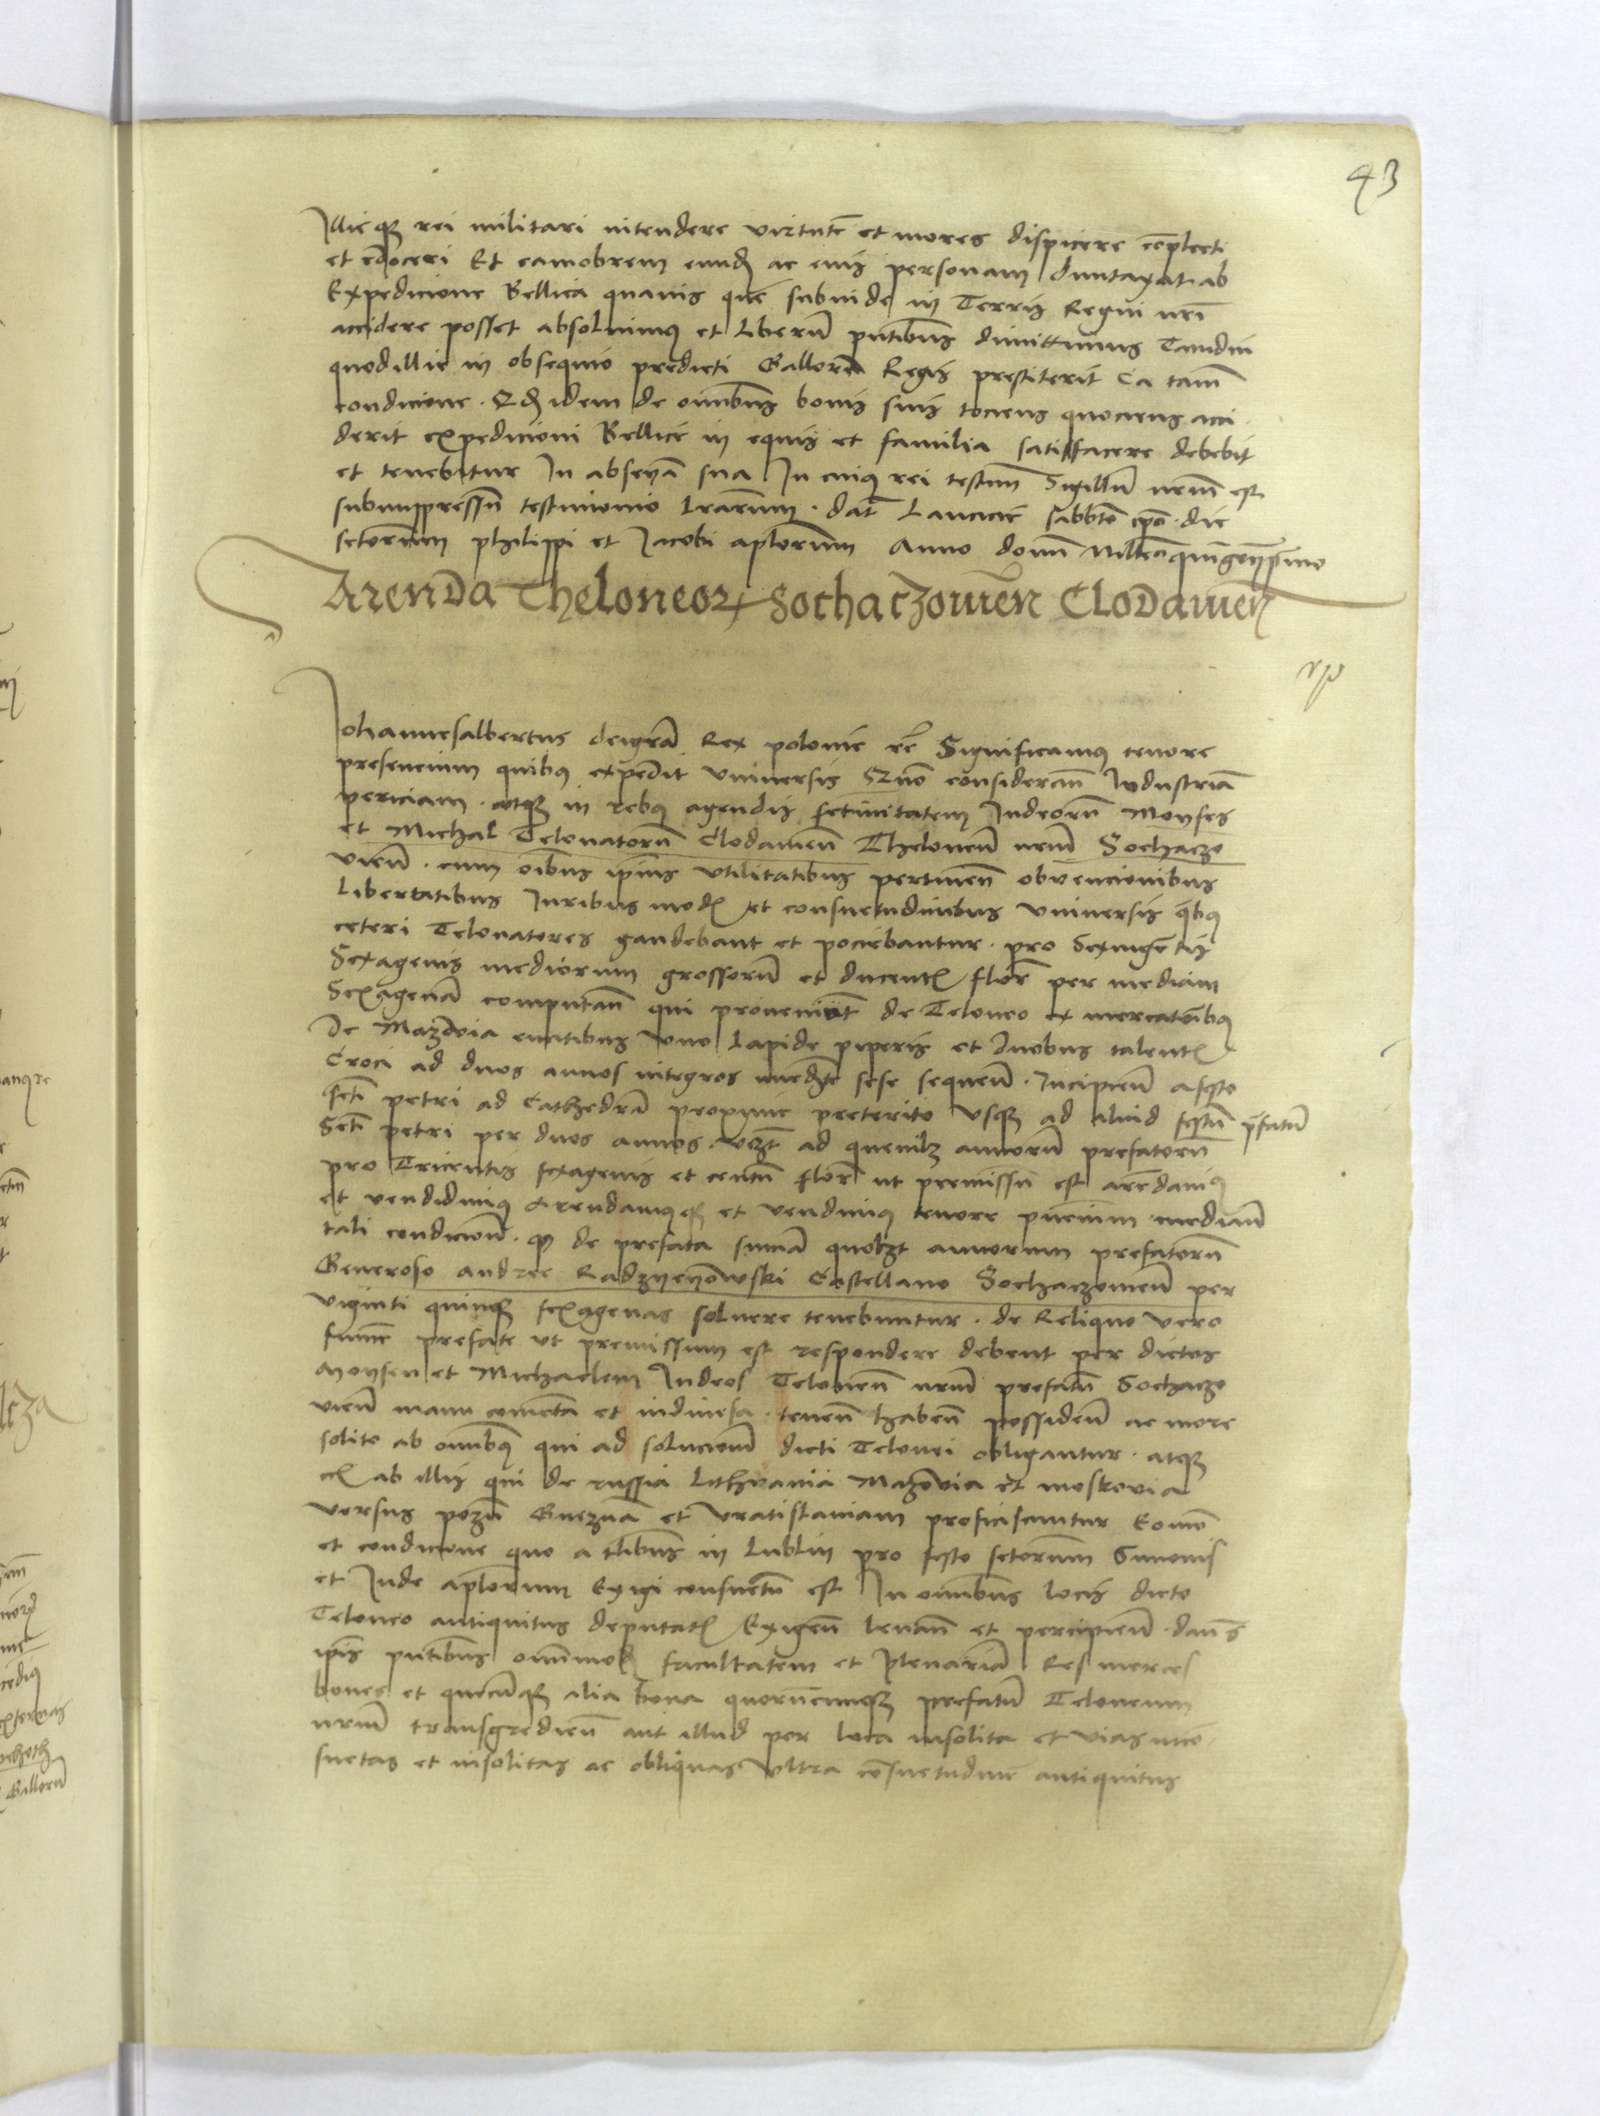 43
Illicq3 rei militari intendere virtutē et mores dispicere cōplecti
et edoceri Et eamobrem eundē ac eius personam duntaxat ab
Expedicione Bellica quavis que subinde in Terris Regni nrī
accidere posset absolvimus et liberū pntībus dimittimus Tamdiu
quod illic in obsequio predicti Gallorū Regis prestiterit Ea tamē
condicione. Qd idem de omībus bonis suis tociens quociens acci
derit expedicioni Bellice in equis et familia satisfacere debebit
et tenebitur In absencia sua In cuius rei testim̄ Sigillū nrūm est
subimpressū testimonio lrarum. dat Lancicie sabbto ipō die
sctorum philippi et Jacobi aplorum Anno domī Millmōquingentesimo
Arenda Theloneor Sochaczowien̄ Clodawien̄
Johannesalbertus dei grā Rex polonie rc̄ Significamus tenore
presencium quibus expedit universis Quō considerañ Industriā
periciam. atq3 in rebus agendis Judeorū Moyses
et Michal Telonatorū Clodavieñ Theloneū nrūm Sochaczo
vieñ. cum oībus ipīus utilitatibus pertineñ obvencionibus
Libertatibus Juribus mod et consuetudinibus universis qbus
ceteri Telonatores gaudebant et pociebantur. pro Sexingentis
Sexagenis mediorum grossorū et ducent flor per mediam
Sexagenā computañ qui proveniūt de Teloneo ex mercatoribus
De Mazovia euntibus uno Lapide piperis et duobus talent
Croci ad duos annos integros imediate sese sequeñ. Incipieñ a festo
scti petri ad Cathedrā proxime preterito usq3 ad aliud festum prefatū
Scti petri per duos annos. videlzt ad quemlz annorū prefatorū
pro Tricentis sexagenis et centū flor ut premissū est arēdavimus
et vendidimus Arendamusq3 et vendimus tenore pnciūm mediañ
tali condicioē. q de prefata summa quolzt annorum prefatorū
Generoso Andree Radzyeyowski Castellano Sochaczovieñ per
viginti quinq3 sexagenas solvere tenebuntur. de Reliquo vero
summe prefate ut premissum est respondere debent per dictos
Moysen et Michaelem Judeos Teloneū nrūm prefatū Sochaczo
vieñ manu coniūcta et indivisa. teneñ habeñ possideñ ac more
solito ab omībus qui ad solucioem dicti Telonei obligantur. atq3
ab illis qui de russia Lithvania Mazovia et moskovia
versus pozñ Gneznā et Vratislaviam proficiscuntur Eo modo
et condicione quo a tlibus in Lublin pro festo sctorum Simonis
et Jude aplorum Exigi consuetū est In omībus locis dicto
Teloneo antiquitus deputat Exigeñ levañ et percipieñ. dañs
ipīs pntībus omimod facultatem et plenariā Res merces
boves et quecūq3 alia bona quorūcumq3 prefatū Teloneum
nrūm transgredieñ aut illud per loca insolita et vias inco
suetas et insolitas ac obliquas ultra cōsuetudine antiquitus